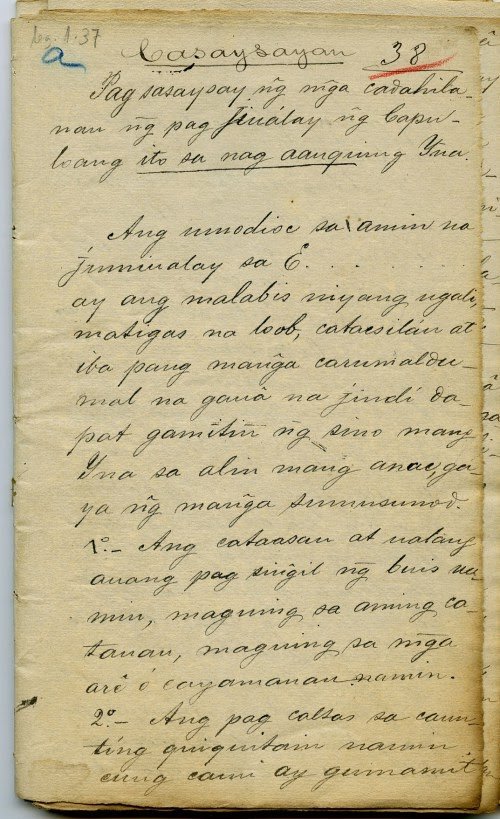 Leg. 1-37
a
Casaysayan
38
Pag sasaysay n̄g m̄ga cadahila-
nan n̄g pag jiuálay n̄g Capu-
loang ito sa nag aanquing Yna.
Ang umodioc sa amin na
jumiualay sa E. . . . . . . .
ay ang malabis niyang ugali,
matigas na loob, catacsilan at
iba pang man̄ga carumaldu-
mal na gaua na jindí da-
pat gamitin n̄g sino mang
Yna sa alin mang anac, ga-
ya n̄g man̄ga sumusunod.
1º.- Ang cataasan at ualang
auang pag síngil n̄g buis na-
min, maguing sa aming ca-
tauan, maguing sa m̄ga
arê ó cayamanan namin.
2º.- Ang pag caltas sa caun-
ting quiquitain namin
cung cami ay gumamit